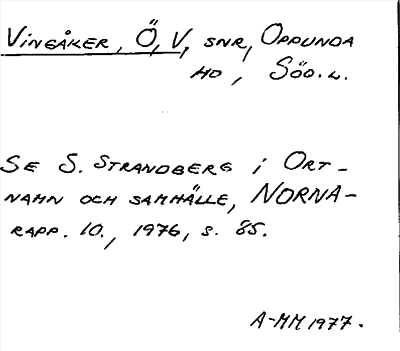 VINGÅKER, Ö, V, SNR, OPPUNDA
HD, SÖD.L.
SE S. STRANDBERG i ORT-
NAMN OCH SAMHÄLLE, NORNA-
RAPP. 10., 1976, S. 85.
A-MM 1977.